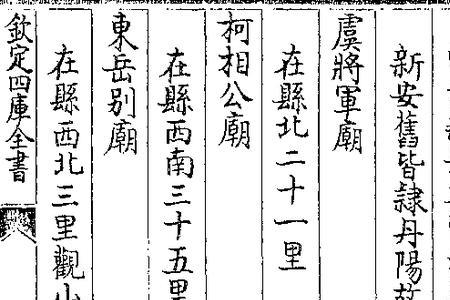 新安舊皆隷丹陽故
虞將軍廟
在縣北二十一里
柯相公廟
在縣西南三十五里
東岳别廟
在縣西北三里觀山
欽定四庫全書